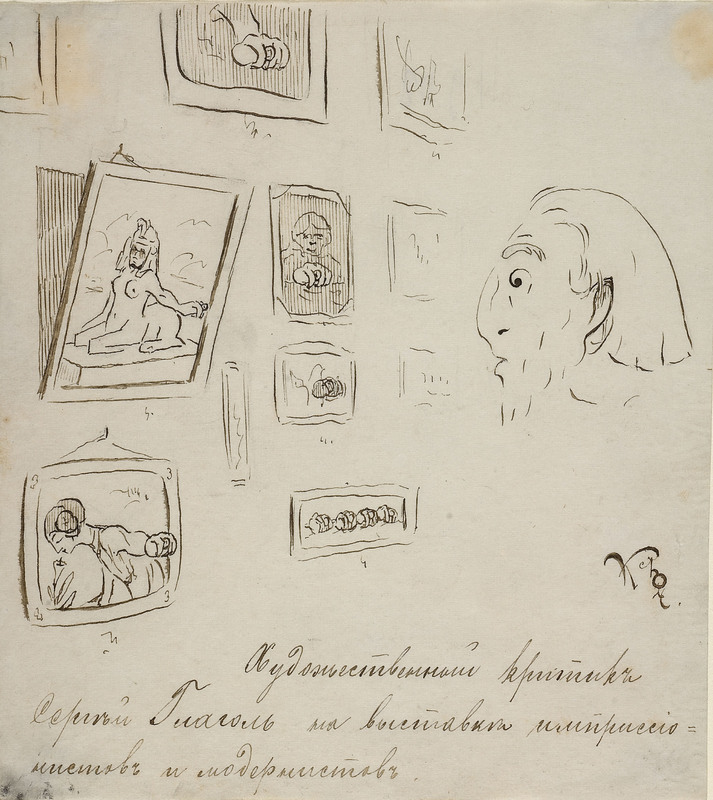 Художественный критикъ
Сергѣй Глаголь на выставкѣ импрессiо=
нистовъ и модернистовъ.